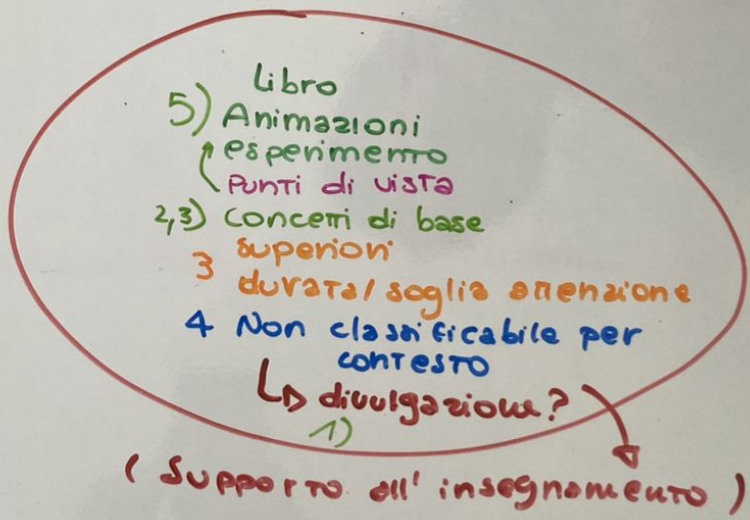 Libro
5) Animazioni
esperimento
Punti di vista
2,3) concetti di base
3 superiori
durata/soglia attenzione
4 Non classificabile per
contesto
↳ divulgazione?
1)
(Supporto all'insegnamento)